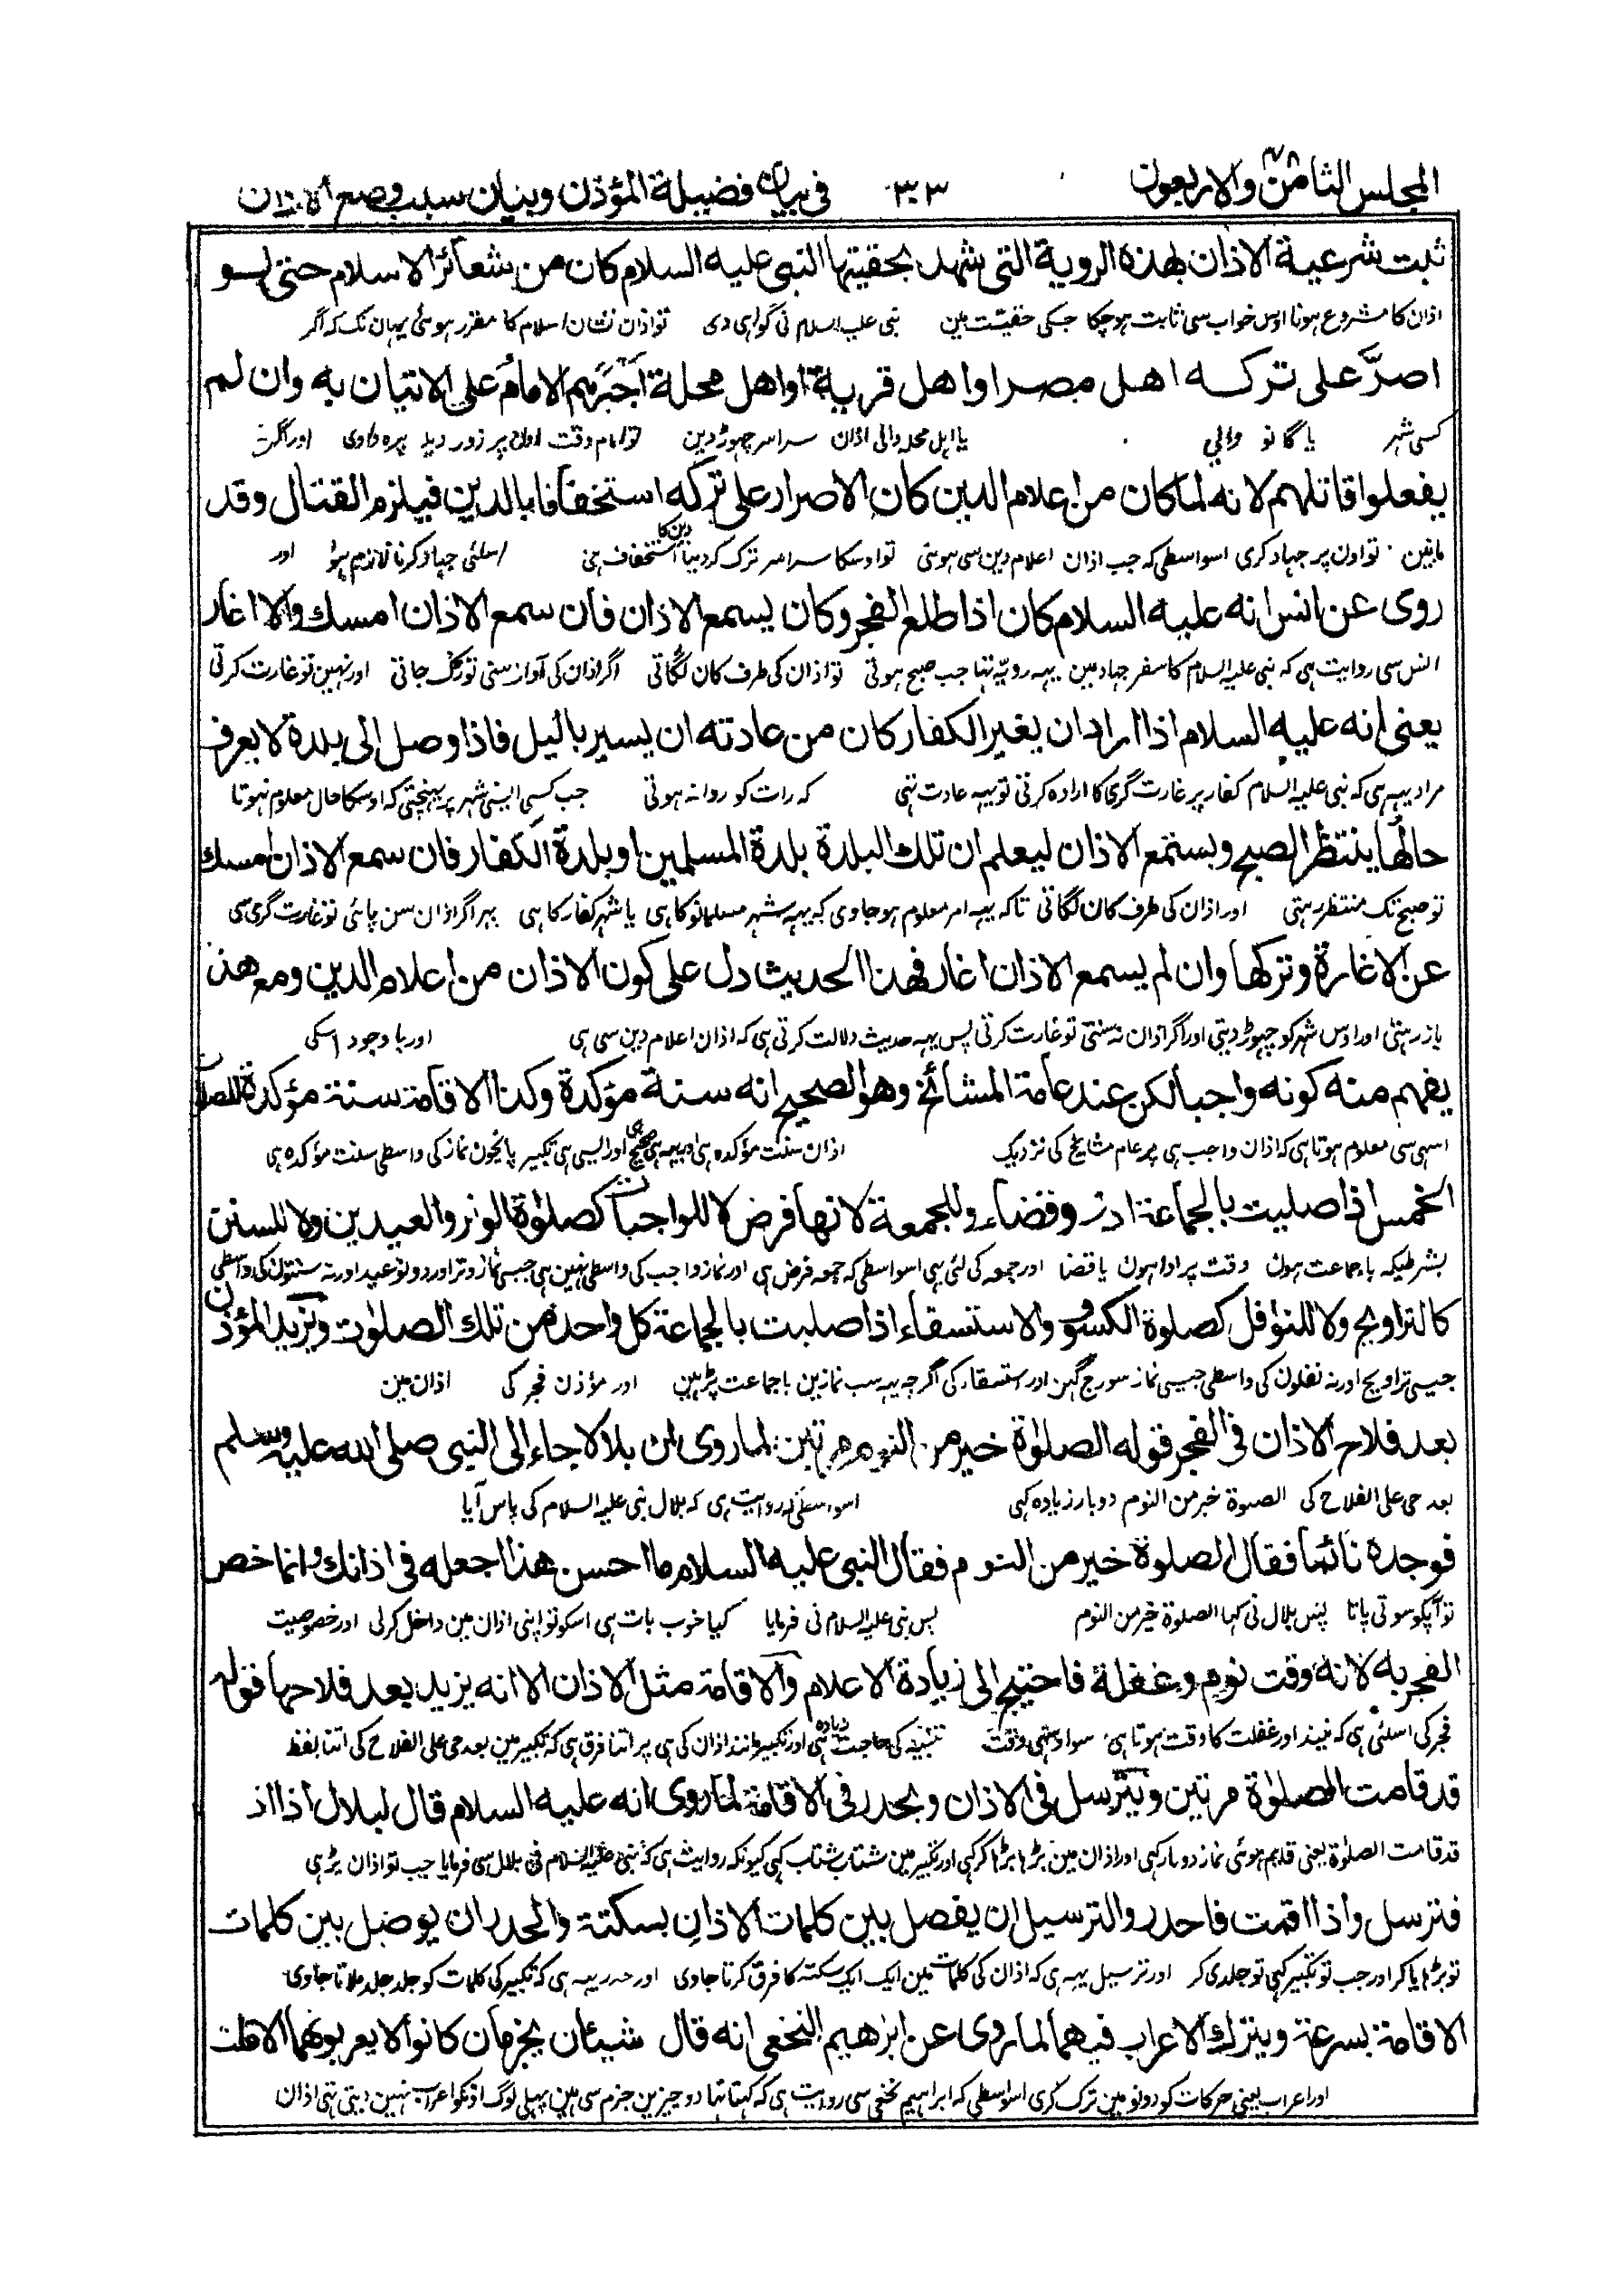 المجلس الثامن والاربعون ٣٠٣ فی بیان فضیلة المؤذن وبیان سبب وضع الاذان
ثبت شرعیة الاذان بهذه الرویة التی شهد بحقیتها النبی علیه السلام کان من شعائر الاسلام حتی لو
اذان کا مشروع ہونا اوس خواب سی ثابت ہوچکا جسکی حقیت مین نبی علیہ السلام نی گواہی دی تو اذان نشان اسلام کا مقرر ہوئی یہان تک کہ اگر
اصرَّ علی ترکه اهل مصر او اهل قریة او اهل محلة اجبرهم الامام علی الاتیان به وان لم
کسی شہر یا گانو والی یا اہل محلہ والی اذان سراسر چہوڑ دین تو امام وقت اذان پر زور دیگر پہروادی اور اگر نہ
یفعلوا قاتلهم لانه لما کان من اعلام الدین کان الاصرار علی ترکه استخفافا بالدین فیلزم القتال وقد
مانین تو اون پر جہاد کری اسواسطی کہ جب اذان اعلام دین سی ہوئی تو اوسکا سراسر ترک کردینا دین کا استخفاف ہی اسلئی جہاد کرنا لازم ہوا اور
روی عن انس انه علیه السلام کان اذا طلع الفجر وکان یسمع الاذان فان سمع الاذان امسك والا اغار
انس سی روایت ہی کہ نبی علیہ السلام کا سفر جہاد مین یہہ رویہ تہا جب صبح ہوتی تو اذان کی طرف کان لگاتی اگر اذان کی آواز سنتی تو رک جاتی اور نہین تو غارت کرتی
یعنی انه علیه السلام اذا اراد ان یغیر الکفار کان من عادته ان یسیر بالیل فاذا وصل الی بلدة لا یعرف
مراد یہہ ہی کہ نبی علیہ السلام کفار پر غارت گری کا ارادہ کرتی تو یہہ عادت تہی کہ رات کو روانہ ہوتی جب کسی ایسی شہر پر پہنچتی کہ اوسکا حال معلوم نہوتا
حالها ینتظر الصبح ویستمع الاذان لیعلم ان تلك البلدة بلدة المسلمین او بلدة الکفار فان سمع الاذان امسك
تو صبح تک منتظر رہتی اور اذان کی طرف کان لگاتی تاکہ یہہ امر معلوم ہوجاوی کہ یہہ شہر مسلمانو کا ہی یا شہر کفار کا ہی پہر اگر اذان سن پاتی تو غارت گری سی
عن الاغارة وترکها وان لم یسمع الاذان اغار فهذا الحدیث دل علی کون الاذان من اعلام الدین ومع هذا
باز رہتی اور اوس شہر کو چہوڑ دیتی اور اگر اذان نہ سنتی تو غارت کرتی پس یہہ حدیث دلالت کرتی ہی کہ اذان اعلام دین سی ہی اور با وجود اسکی
یفهم منه کونه واجبا لکن عند عامة المشائخ وهو الصحیح انه سنة مؤکدة وکذا الاقامة سنة مؤکدة للصلوات
اسی سی معلوم ہوتا ہی کہ اذان واجب ہی پر عام مشایخ کی نزدیک اذان سنت مؤکدہ ہی اور یہہ ہی صحیح ہی اور ایسی ہی تکبیر پانچون نماز کی واسطی سنت مؤکدہ ہی
الخمس اذا صلیت بالجماعة اداء وقضاء وللجمعة لانها فرض لا للواجبات کصلوٰة الوتر والعیدین ولا للسنن
بشرطیکہ باجماعت ہون وقت پر ادا ہون یا قضا اور جمعہ کی لئی بہی اسواسطی کہ جمعہ فرض ہی اور نماز واجب کی واسطی نہین ہی جیسی نماز وتر اور دونو عید اور نہ سنتون کی واسطی
کالتراویح ولا للنوافل کصلوة الکسوف والاستسقاء اذا صلیت بالجماعة کل واحد من تلك الصلوٰت ویزید المؤذن
جیسی تراویح اور نہ نفلون کی واسطی جیسی نماز سورج گہن اور استسقاء کی اگرچہ یہہ سب نمازین باجماعت پڑہین اور مؤذن فجر کی اذان مین
بعد فلاح الاذان فی الفجر قوله الصلوٰة خیر من النوم مرتین لما روی ان بلالا جاء الی النبی صلی الله علیه وسلم
بعد حی علی الفلاح کی الصلوة خیر من النوم دوبار زیادہ کہی اسواسطی کہ روایت ہی کہ بلال نبی علیہ السلام کی پاس آیا
فوجده نائما فقال الصلوة خیر من النوم فقال النبی علیه السلام ما احسن هذا اجعله فی اذانك وانما خص
تو آپکو سوتی پاتا پس بلال نی کہا الصلوة خیر من النوم پس نبی علیہ السلام نی فرمایا کیا خوب بات ہی اسکو تو اپنی اذان مین داخل کرلی اور خصوصیت
الفجر به لانه وقت نوم وغفلة فاحتیج الی زیادة الاعلام والاقامة مثل الاذان الا انه یزید بعد فلاحها قوله
فجر کی اسلئی ہی کہ نیند اور غفلت کا وقت ہوتا ہی سو اوس وقت تنبیہ کی زیادہ حاجت ہی اور تکبیر مانند اذان کی ہی پر اتنا فرق ہی کہ تکبیر مین بعد حی علی الفلاح کی اتنا لفظ
قد قامت الصلوٰة مرتین ویترسل فی الاذان ویحدر فی الاقامة لما روی انه علیه السلام قال لبلال اذا اذ
قد قامت الصلوٰة یعنی قایم ہوئی نماز دوبار کہی اور اذان مین بڑہا بڑہا کر کہی اور تکبیر مین شتاب شتاب کہی کیونکہ روایت ہی کہ نبی علیہ السلام نی بلال سی فرمایا جب تو اذان پڑہی
فترسل واذا اقمت فاحدر والترسیل ان یفصل بین کلمات الاذان بسکتة والحدر ان یوصل بین کلمات
تو بڑہایا کر اور جب تو تکبیر کہی تو جلدی کر اور ترسیل یہہ ہی کہ اذان کی کلمات مین ایک ایک سکتہ کا فرق کرتا جاوی اور حدر یہہ ہی کہ تکبیر کی کلمات کو جلد جلد ملاتا جاوی
الاقامة بسرعة ویترك الاعراب فیهما لما روی عن ابرهیم النخعی انه قال شیئان یجزمان کانوا لا یعربونهما الاذان
اور اعراب یعنی حرکات کو دونو مین ترک کری اسواسطی کہ ابراہیم نخعی سی روایت ہی کہ کہتا تہا دو چیزین جزم سی ہین پہلی لوگ اونکو اعراب نہین دیتی تہی اذان